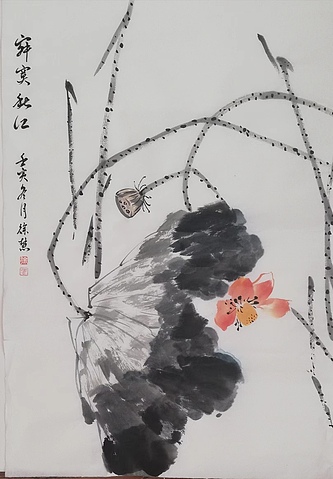 寂寞秋江
壬寅冬月徐